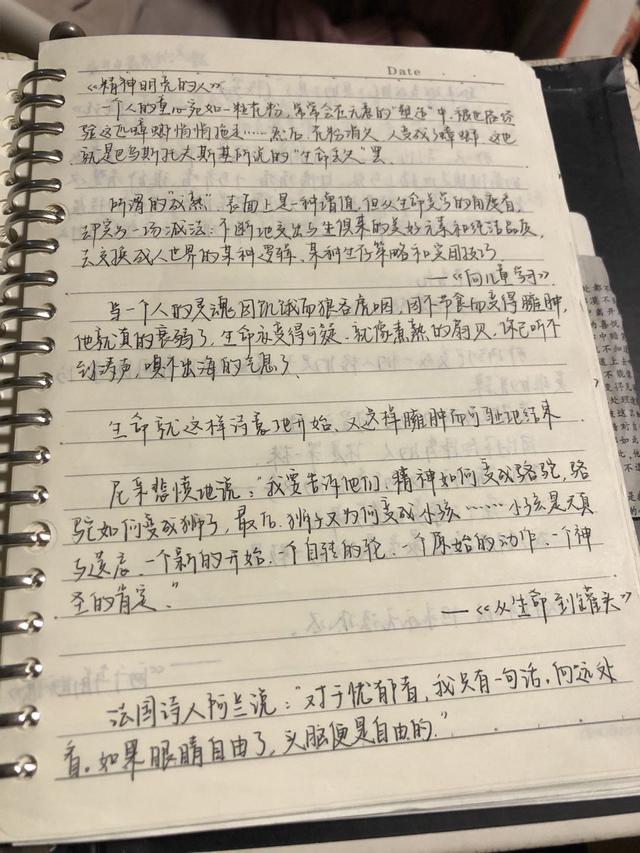 Date
《精神明亮的人》
一个人的童心宛如一粒花粉，常常会在无意的“塑造”中，被世故经
验这匹蟑螂悄悄拖走……然后，花粉消失，人变成了蟑螂。这也
就是巴乌斯托夫斯基所说的“生命丢失”罢。
所谓的“成熟”，表面上是一种增值，但从生命美学的角度看，
却实为一场减法：不断地交出与生俱来的美好元素和纯洁品质，
去交换成人世界的某种逻辑、某种生存策略和实用技巧。
——《向儿童学习》
当一个人的灵魂因饥饿而狼吞虎咽，因不节食而变得臃肿，
他就真的衰弱了，生命亦变得可疑。就像煮熟的扇贝，你已听不
到涛声，嗅不出海的气息了。
生命就这样诗意地开始，又这样臃肿而可耻地结束
尼采悲愤地说：“我要告诉他们，精神如何变成骆驼，骆
驼如何变成狮子，最后，狮子又为何变成小孩……小孩是天真
与遗忘，一个新的开始，一个自转的轮，一个原始的动作，一个神
圣的肯定。”
——《从生命到罐头》
法国诗人阿兰说：“对于忧郁者，我只有一句话，向远处
看。如果眼睛自由了，头脑便是自由的。”